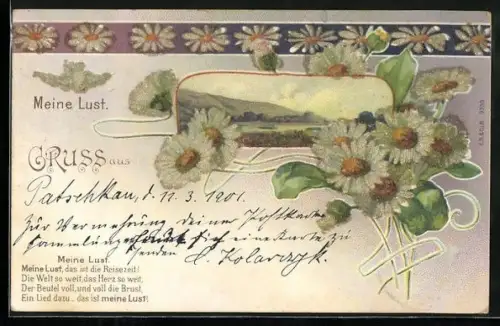 Meine Lust.
Gruss aus
Patschkau, d. 11. 3. 1901.
Zur Vermehrung deiner Postkarten
sammlung dir eine Karte zu
senden
Kolarczyk.
Meine Lust.
Meine Lust, das ist die Reisezeit!
Die Welt so weit, das Herz so weit,
Der Beutel voll, und voll die Brust,
Ein Lied dazu... das ist meine Lust!